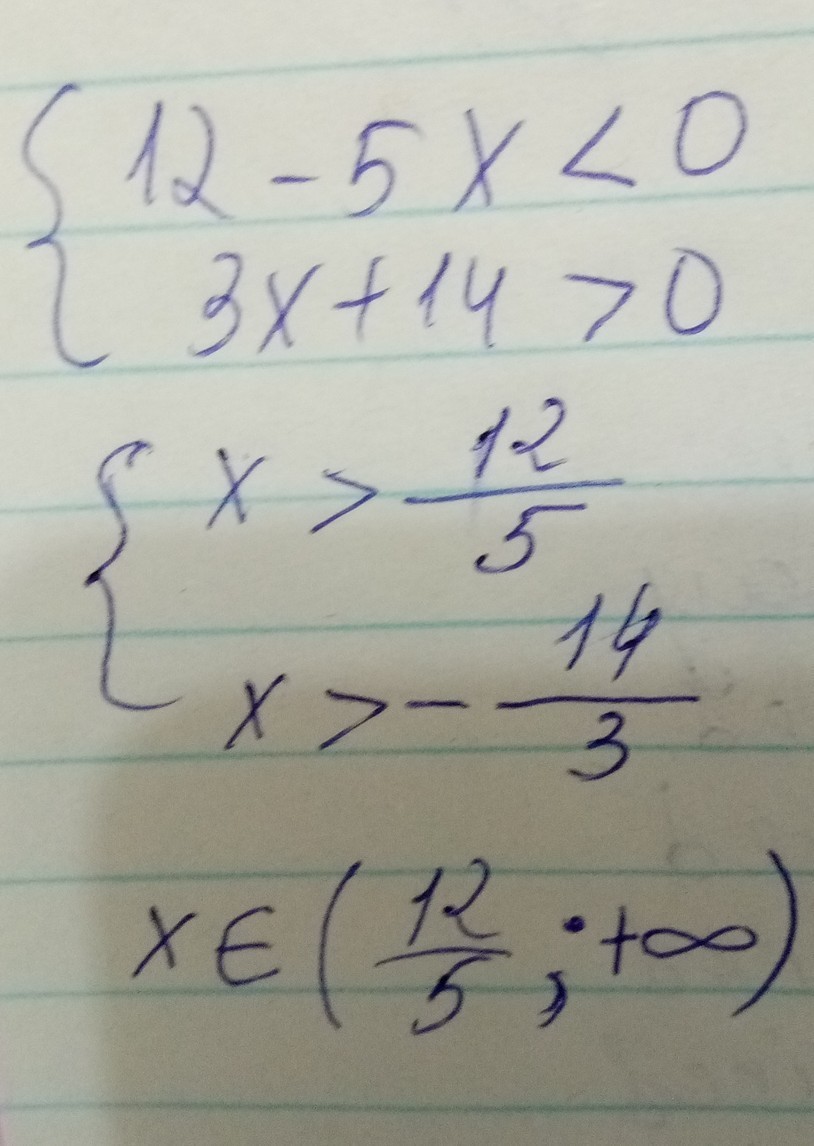 { 12 - 5x < 0
3x + 14 > 0
{ x > 12/5
x > - 14/3
x ∈ (12/5 ; +∞)